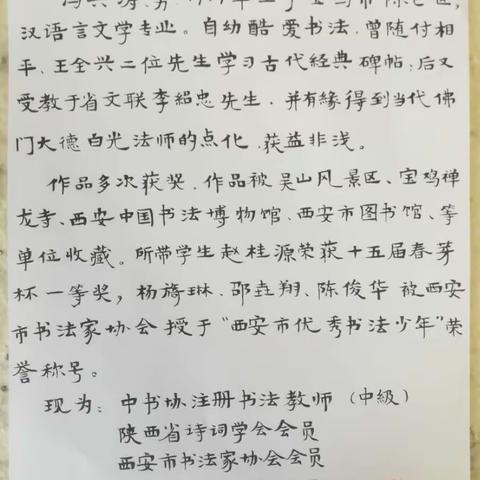 汉语言文学专业。自幼酷爱书法,曾随付相
平、王全兴二位先生学习古代经典碑帖;后又
受教于省文联李紹忠先生.并有緣得到当代佛
门大德白光法师的点化.获益非浅。
作品多次获奖.作品被吴山风景区、宝鸡禅
龙寺、西安中国书法博物馆、西安市图书馆、等
单位收藏。所带学生赵桂源荣获十五届春芽
杯一等奖,杨旖琳.邵垚翔、陈俊华被西安
市书法家协会授于“西安市优秀书法少年”荣
誉称号。
现为:中书协注册书法教师(中級)
陕西省诗词学会会员
西安市书法家协会会员